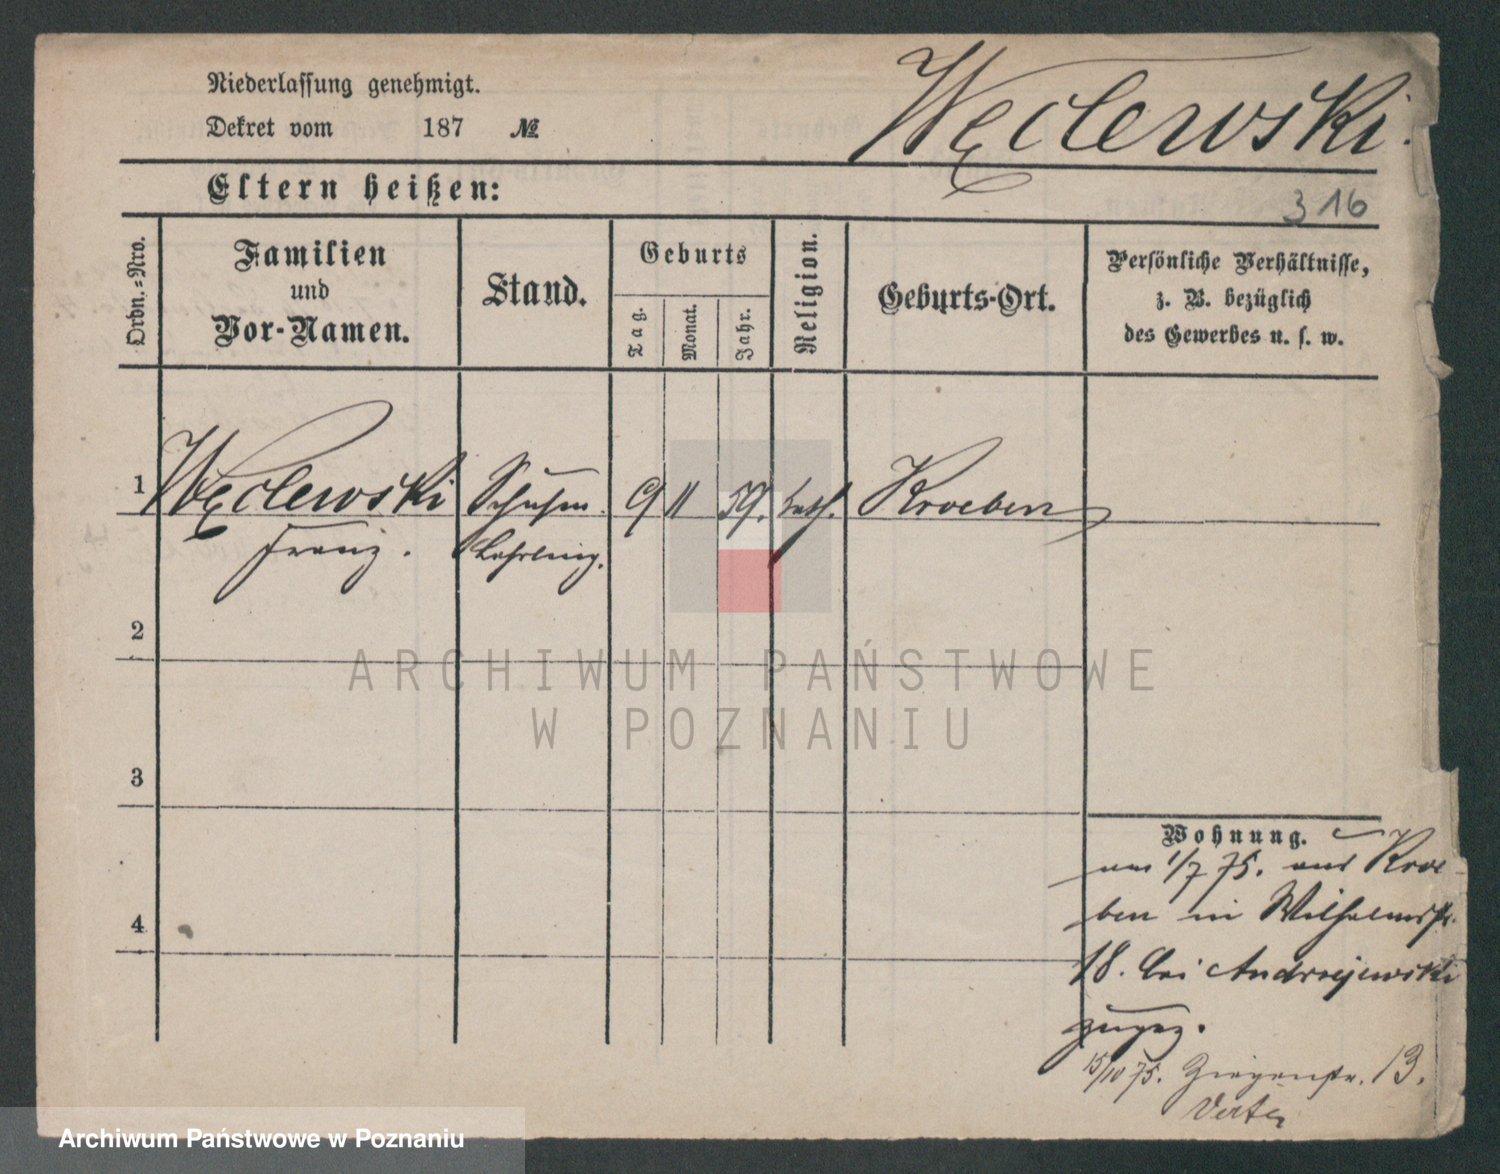 Niederlassung genehmigt.
Dekret vom 187 №
Węclewski.
Eltern heißen:
316
Ordn.-Nro.
Familien
und
Vor-Namen.
Stand.
Geburts
Tag.
Monat.
Jahr.
Religion.
Geburts-Ort.
Persönliche Verhältnisse,
z. B. bezüglich
des Gewerbes u. s. w.
1 Węclewski Schuhm. 9 11 59. kath. Kroeben
Franz. Lehrling.
2
ARCHIWUM PAŃSTWOWE
W POZNANIU
3
Wohnung.
am 1/7 75. aus Kroe-
ben in Wilhelmstr.
4
18. bei Andrzejewski
zugez.
15/10 75. Ziegenstr. 13.
Archiwum Państwowe w Poznaniu